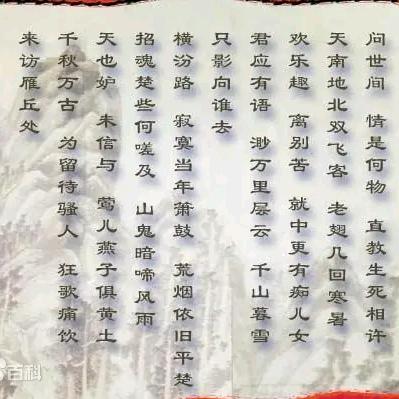 问世间 情是何物 直教生死相许
天南地北双飞客 老翅几回寒暑
欢乐趣 离别苦 就中更有痴儿女
君应有语 渺万里层云 千山暮雪
只影向谁去
横汾路 寂寞当年萧鼓 荒烟依旧平楚
招魂楚些何嗟及 山鬼暗啼风雨
天也妒 未信与 莺儿燕子俱黄土
千秋万古 为留待骚人 狂歌痛饮
来访雁丘处
百科